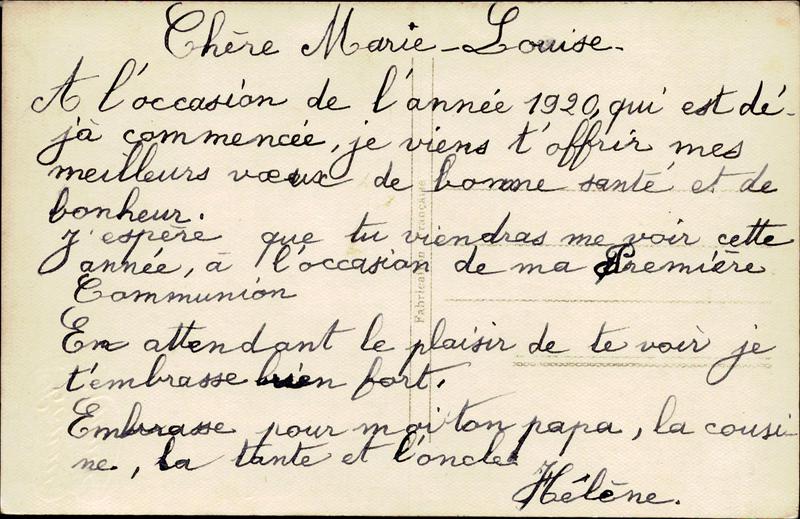 Chère Marie-Louise-
A l'occasion de l'année 1920, qui est dé-
jà commencée, je viens t'offrir mes
meilleurs vœux de bonne santé et de
bonheur.
J'espère que tu viendras me voir cette
année, à l'occasion de ma Première
Communion
En attendant le plaisir de te voir je
t'embrasse bien fort.
Embrasse pour moi ton papa, la cousi
ne, la tante et l'oncle
Hélène.
Fabrication Française